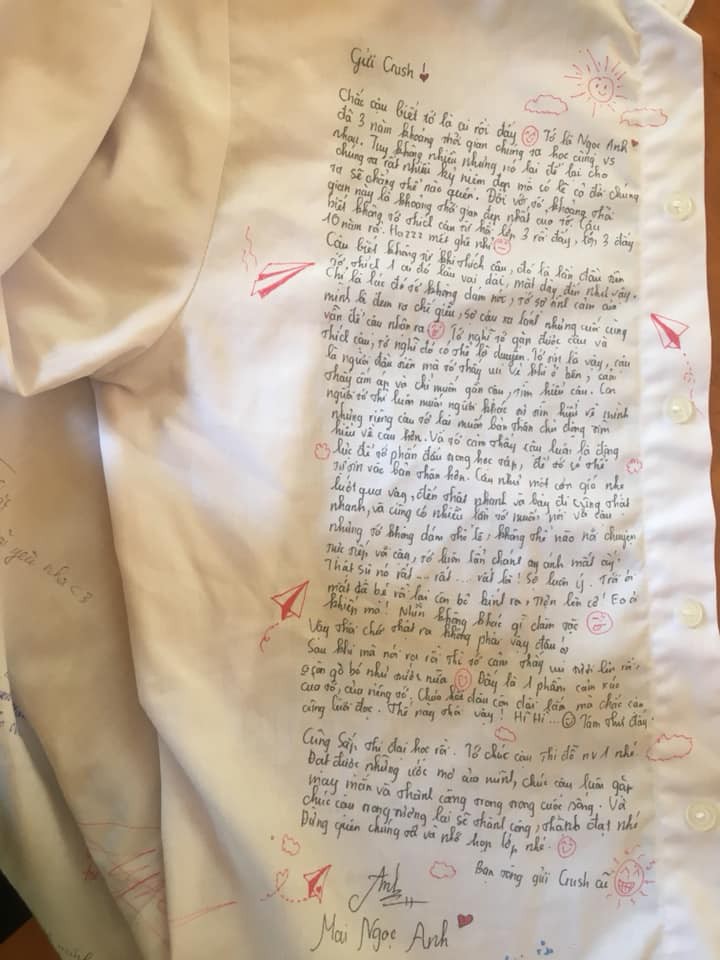 Gửi Crush !
Chắc cậu biết tớ là ai rồi đấy Tớ là Ngọc Anh
đã 3 năm khoảng thời gian chúng ta học cùng vs
nhau. Tuy không nhiều nhưng nó lại để lại cho
chúng ta rất nhiều kỷ niệm đẹp mà có lẽ cả đời chúng
ta sẽ chẳng thể nào quên. Đối với tớ, khoảng thời
gian này là khoảng thời gian đẹp nhất của tớ. Cậu
biết không tớ thích cậu từ hồi lớp 3 rồi đấy, lớp 3 đấy
10 năm rồi. Hazzz mệt ghê nhỉ
Cậu biết không từ khi thích cậu, đó là lần đầu tiên
tớ thích 1 ai đó lâu vai dai, mặt dày đến như vậy.
Chỉ là lúc đó tớ không dám nói, tớ sợ tình cảm của
mình bị đem ra chế giễu, sợ cậu xa lánh nhưng cuối cùng
vẫn để cậu nhận ra Tớ nghĩ tớ gặp được cậu và
thích cậu, tớ nghĩ đó có thể là duyên. Tớ tin là vậy, cậu
là người đầu tiên mà tớ thấy vui vẻ khi ở bên, cảm
thấy ấm áp và chỉ muốn gần cậu, tìm hiểu cậu. Con
người tớ thì luôn muốn người khác tìm hiểu về mình
nhưng riêng cậu tớ lại muốn bản thân chủ động tìm
hiểu về cậu hơn. Và tớ cảm thấy cậu luôn là động
lực để tớ phấn đấu trong học tập, để tớ có thể
tự tin vào bản thân hơn. Cậu như một cơn gió nhẹ
lướt qua vậy, đến thật nhanh và bay đi cũng thật
nhanh, và cũng có nhiều lần tớ muốn nói với cậu
nhưng tớ không dám thổ lộ, không thể nào nói chuyện
trực tiếp với cậu, tớ luôn lẩn tránh ánh mắt ấy.
Thật sự nó rất ... rất ... rất là ! So luôn ý. Trời ơi
mắt đã bé rồi lại còn bỏ kính ra, Trên lên cơ! Eo ơi
khiếp mà ! Nhìn không khác gì
Vậy thôi chớ thật ra không phải vậy đâu!
Sau khi mà nói ra rồi thì tớ cảm thấy vui tươi lên rồi,
gò bó như trước nữa Đấy là 1 phần cảm xúc
của tớ, của riêng tớ. Chưa hết đâu còn dài lắm mà chắc cậu
cũng lười đọc. Thế này thôi vậy ! Hi Hi ... Tâm thư đấy.
Cũng Sắp thi đại học rồi. Tớ chúc cậu Thi đỗ nv 1 nhé.
Đạt được những ước mơ của mình, chúc cậu luôn gặp
may mắn và thành công trong trong cuộc sống. Và
chúc cậu trong tương lai sẽ thành công, thành đạt nhé
Đừng quên chúng tớ và nhớ họp lớp nhé.
Bạn từng gửi Crush cũ
Anh
Mai Ngọc Anh
yêu nha <3